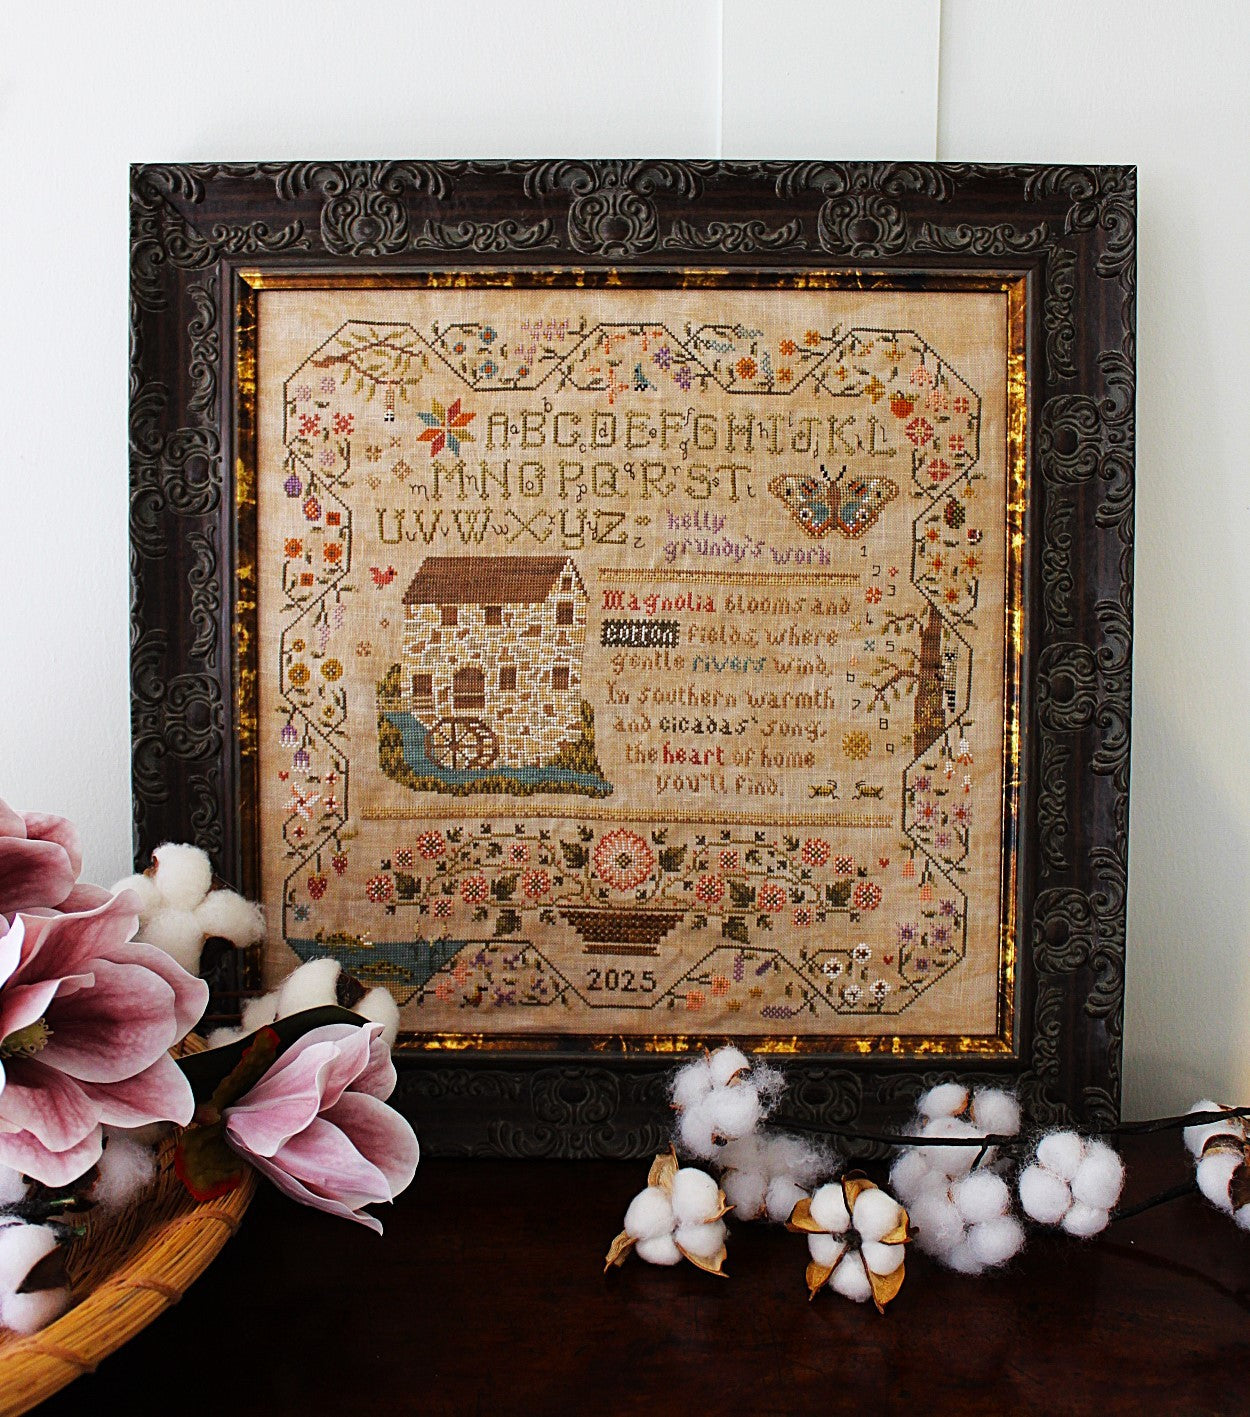 ABCDEFGHIJKL
a b c d e f g h i j k l
MNOPQRST
m n o p q r s t
UVWXYZ
u v w x y z
kelly
grundy's work
1
2
3
4
5
6
7
8
9
Magnolia blooms and
cotton fields, where
gentle rivers wind,
In southern warmth
and cicadas' song,
the heart of home
you'll find.
2025